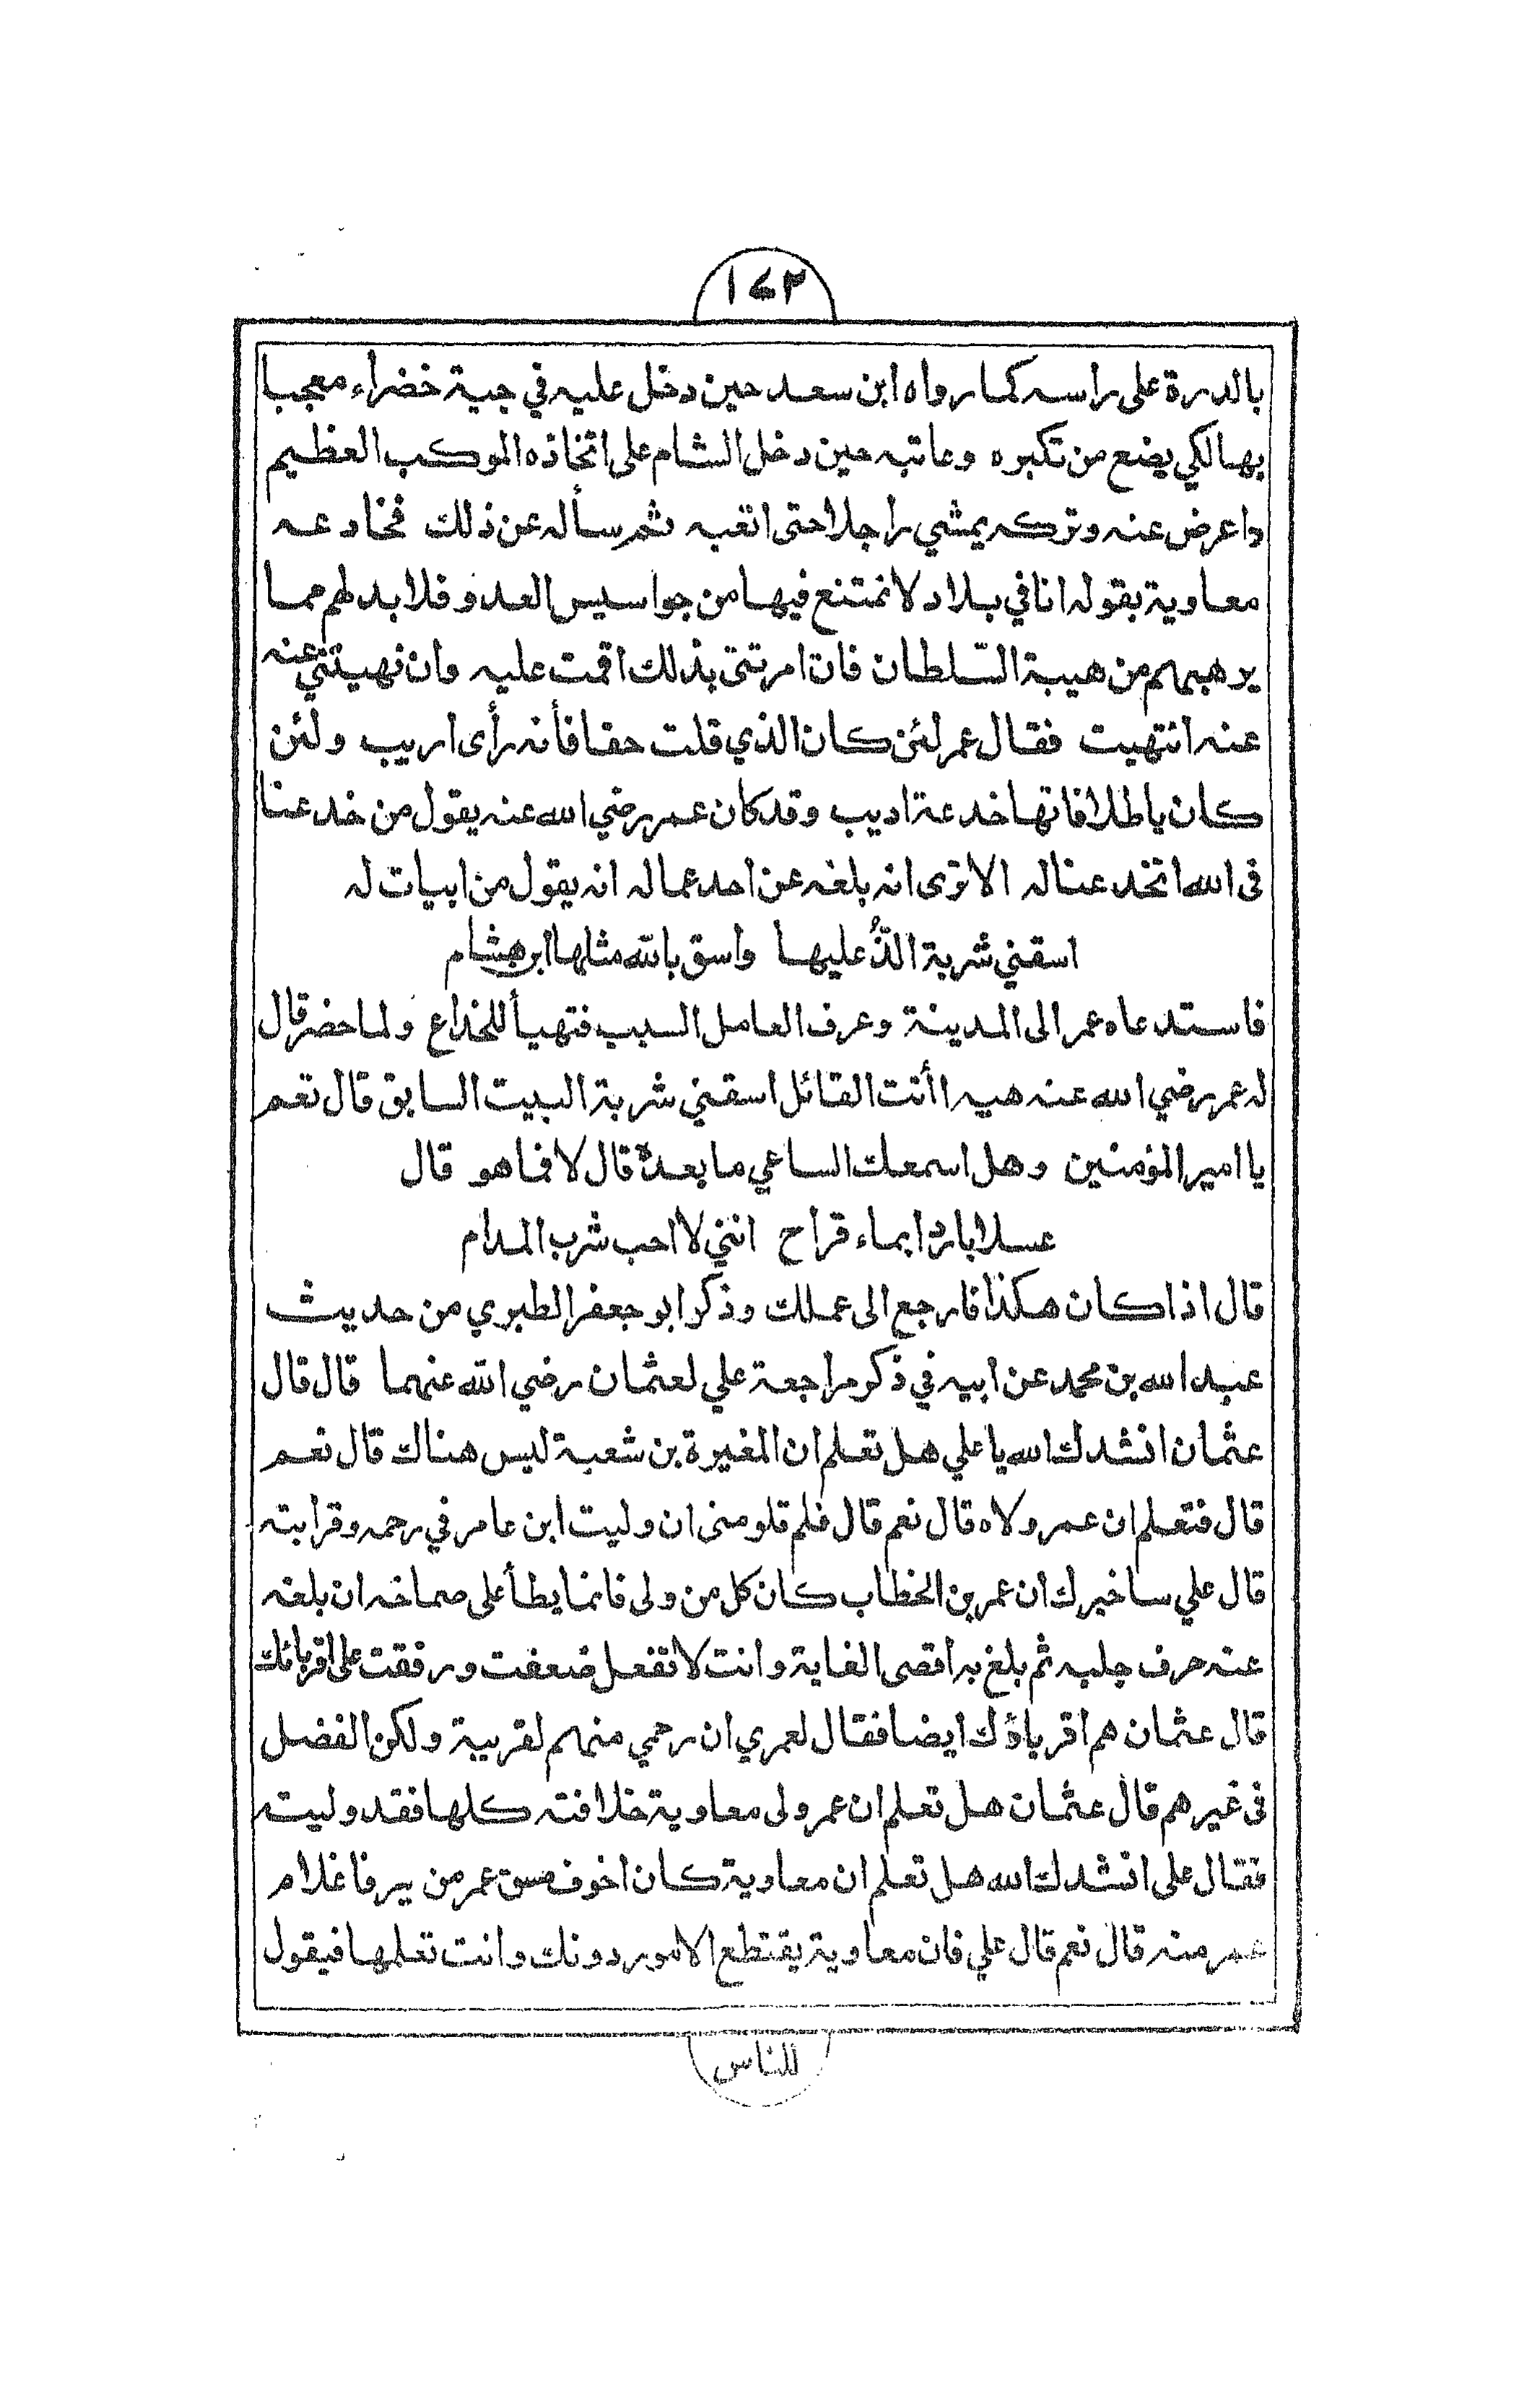 ١٤٢
بالدرة على راسه كما رواه ابن سعد حين دخل عليه في جبة خضراء معجبا
بها لكي يضع من تكبره وعاتبه حين دخل الشام على اتخاذه الموكب العظيم
واعرض عنه وتركه يمشي راجلا حتى اتعبه ثم سأله عن ذلك فخادعه
معاوية بقوله انا في بلاد لا نمتنع فيها من جواسيس العدو فلا بد لهم مما
يرهبهم من هيبة السلطان فان امرتنى بذلك اقمت عليه وان نهيتني عنه
عنه انتهيت فقال عمر لئن كان الذي قلت حقا فأنه رأى اريب ولئن
كان باطلا فانها خدعة اديب وقد كان عمر رضي الله عنه يقول من خدعنا
فى الله انخدعنا له الا ترى انه بلغه عن احد عماله انه يقول من ابيات له
اسقني شربة الذُّ عليها واسق بالله مثلها ابن هشام
فاستدعاه عمر الى المدينة وعرف العامل السبب فتهيأ للخداع ولما حضر قال
له عمر رضي الله عنه هيه اأنت القائل اسقني شربة البيت السابق قال نعم
يا امير المؤمنين وهل اسمعك الساعي ما بعده قال لا فما هو قال
عسلا باردا بماء قراح انني لا احب شرب المدام
قال اذا كان هكذا فارجع الى عملك وذكر ابو جعفر الطبري من حديث
عبد الله بن محمد عن ابيه في ذكر مراجعة علي لعثمان رضي الله عنهما قال قال
عثمان انشدك الله يا علي هل تعلم ان المغيرة بن شعبة ليس هناك قال نعم
قال فتعلم ان عمر ولاه قال نعم قال فلم تلومنى ان وليت ابن عامر في رحمه وقرابته
قال علي ساخبرك ان عمر بن الخطاب كان كل من ولى فانما يطأ على صماخه ان بلغه
عنه حرف جلبه ثم بلغ به اقصى الغاية وانت لا تفعل ضعفت ورفقت على اقربائك
قال عثمان هم اقرباؤك ايضا فقال لعمري ان رحمي منهم لقريبة ولكن الفضل
فى غيرهم قال عثمان هل تعلم ان عمر ولى معاوية خلافته كلها فقد وليته
فقال على انشدك الله هل تعلم ان معاوية كان اخوف من عمر من يرفا غلام
عمر منه قال نعم قال علي فان معاوية يقتطع الامور دونك وانت تعلمها فيقول
للناس